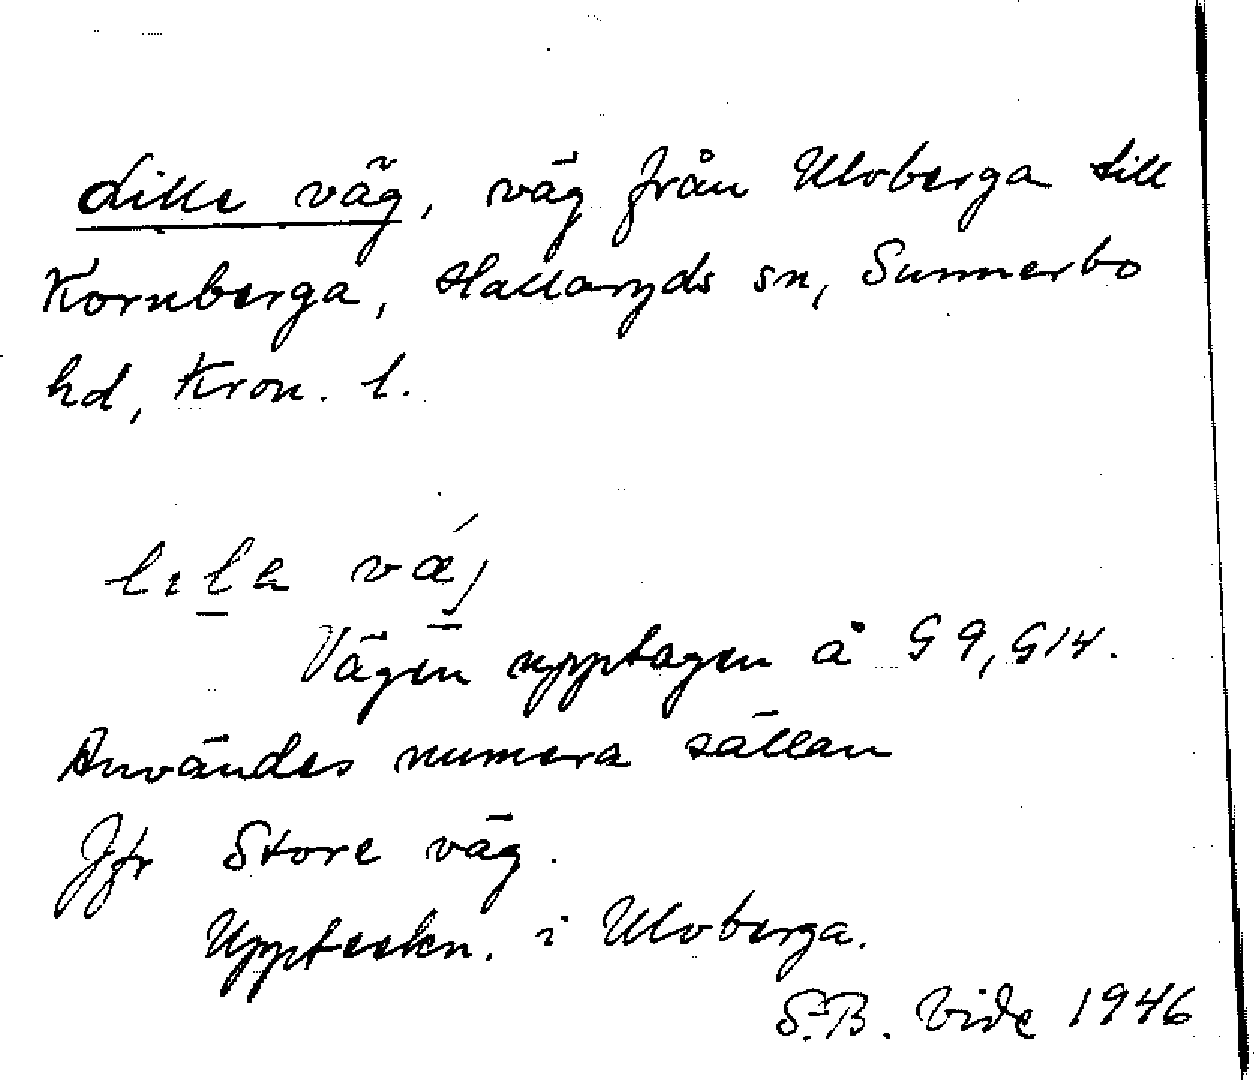 Lille väg, väg från Ulvberga till
Kornberga, Hallaryds sn, Sunnerbo
hd, Kron. l.
lıla væ´j
Vägen upptagen å G 9, G 14.
Användes numera sällan
Jfr Store väg.
Uppteckn. i Ulvberga.
S.B. Vide 1946